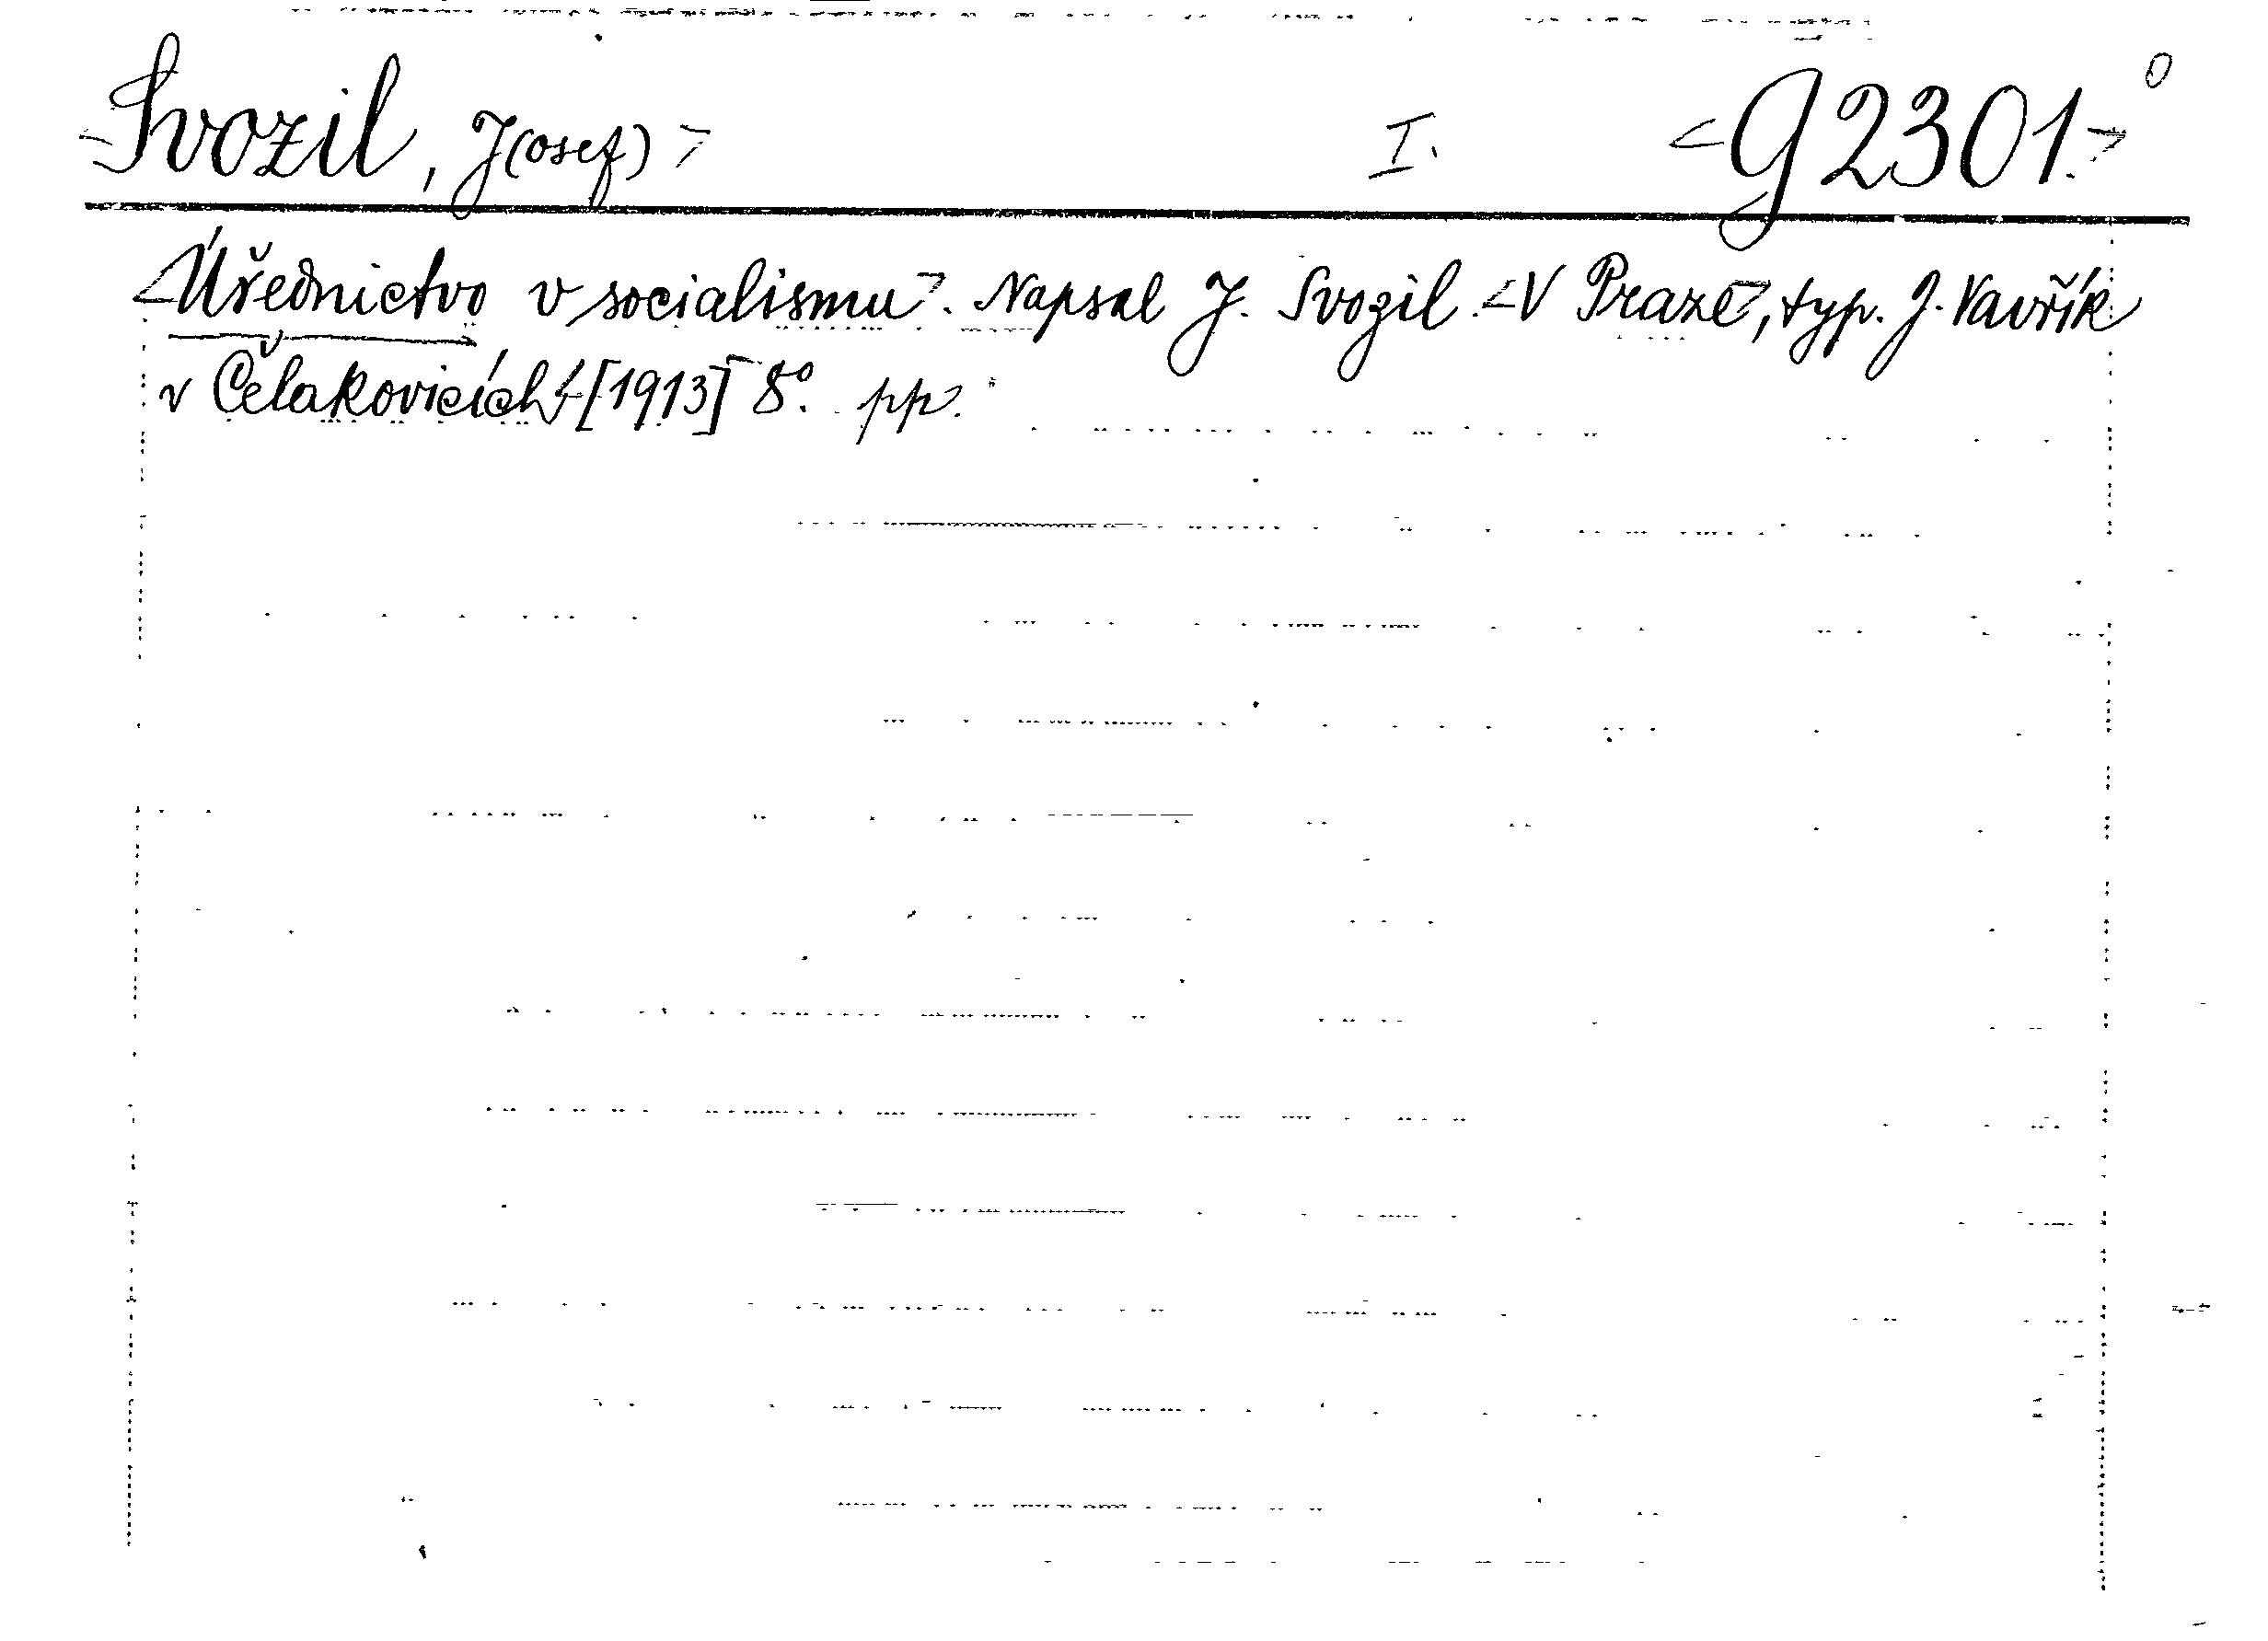 Svozil, J(osef) I. G 2301.⁰
Úřednictvo v socialismu. Napsal J. Svozil. V Praze, typ. J. Vavřík
v Čelakovicích [1913] 8⁰. pp.